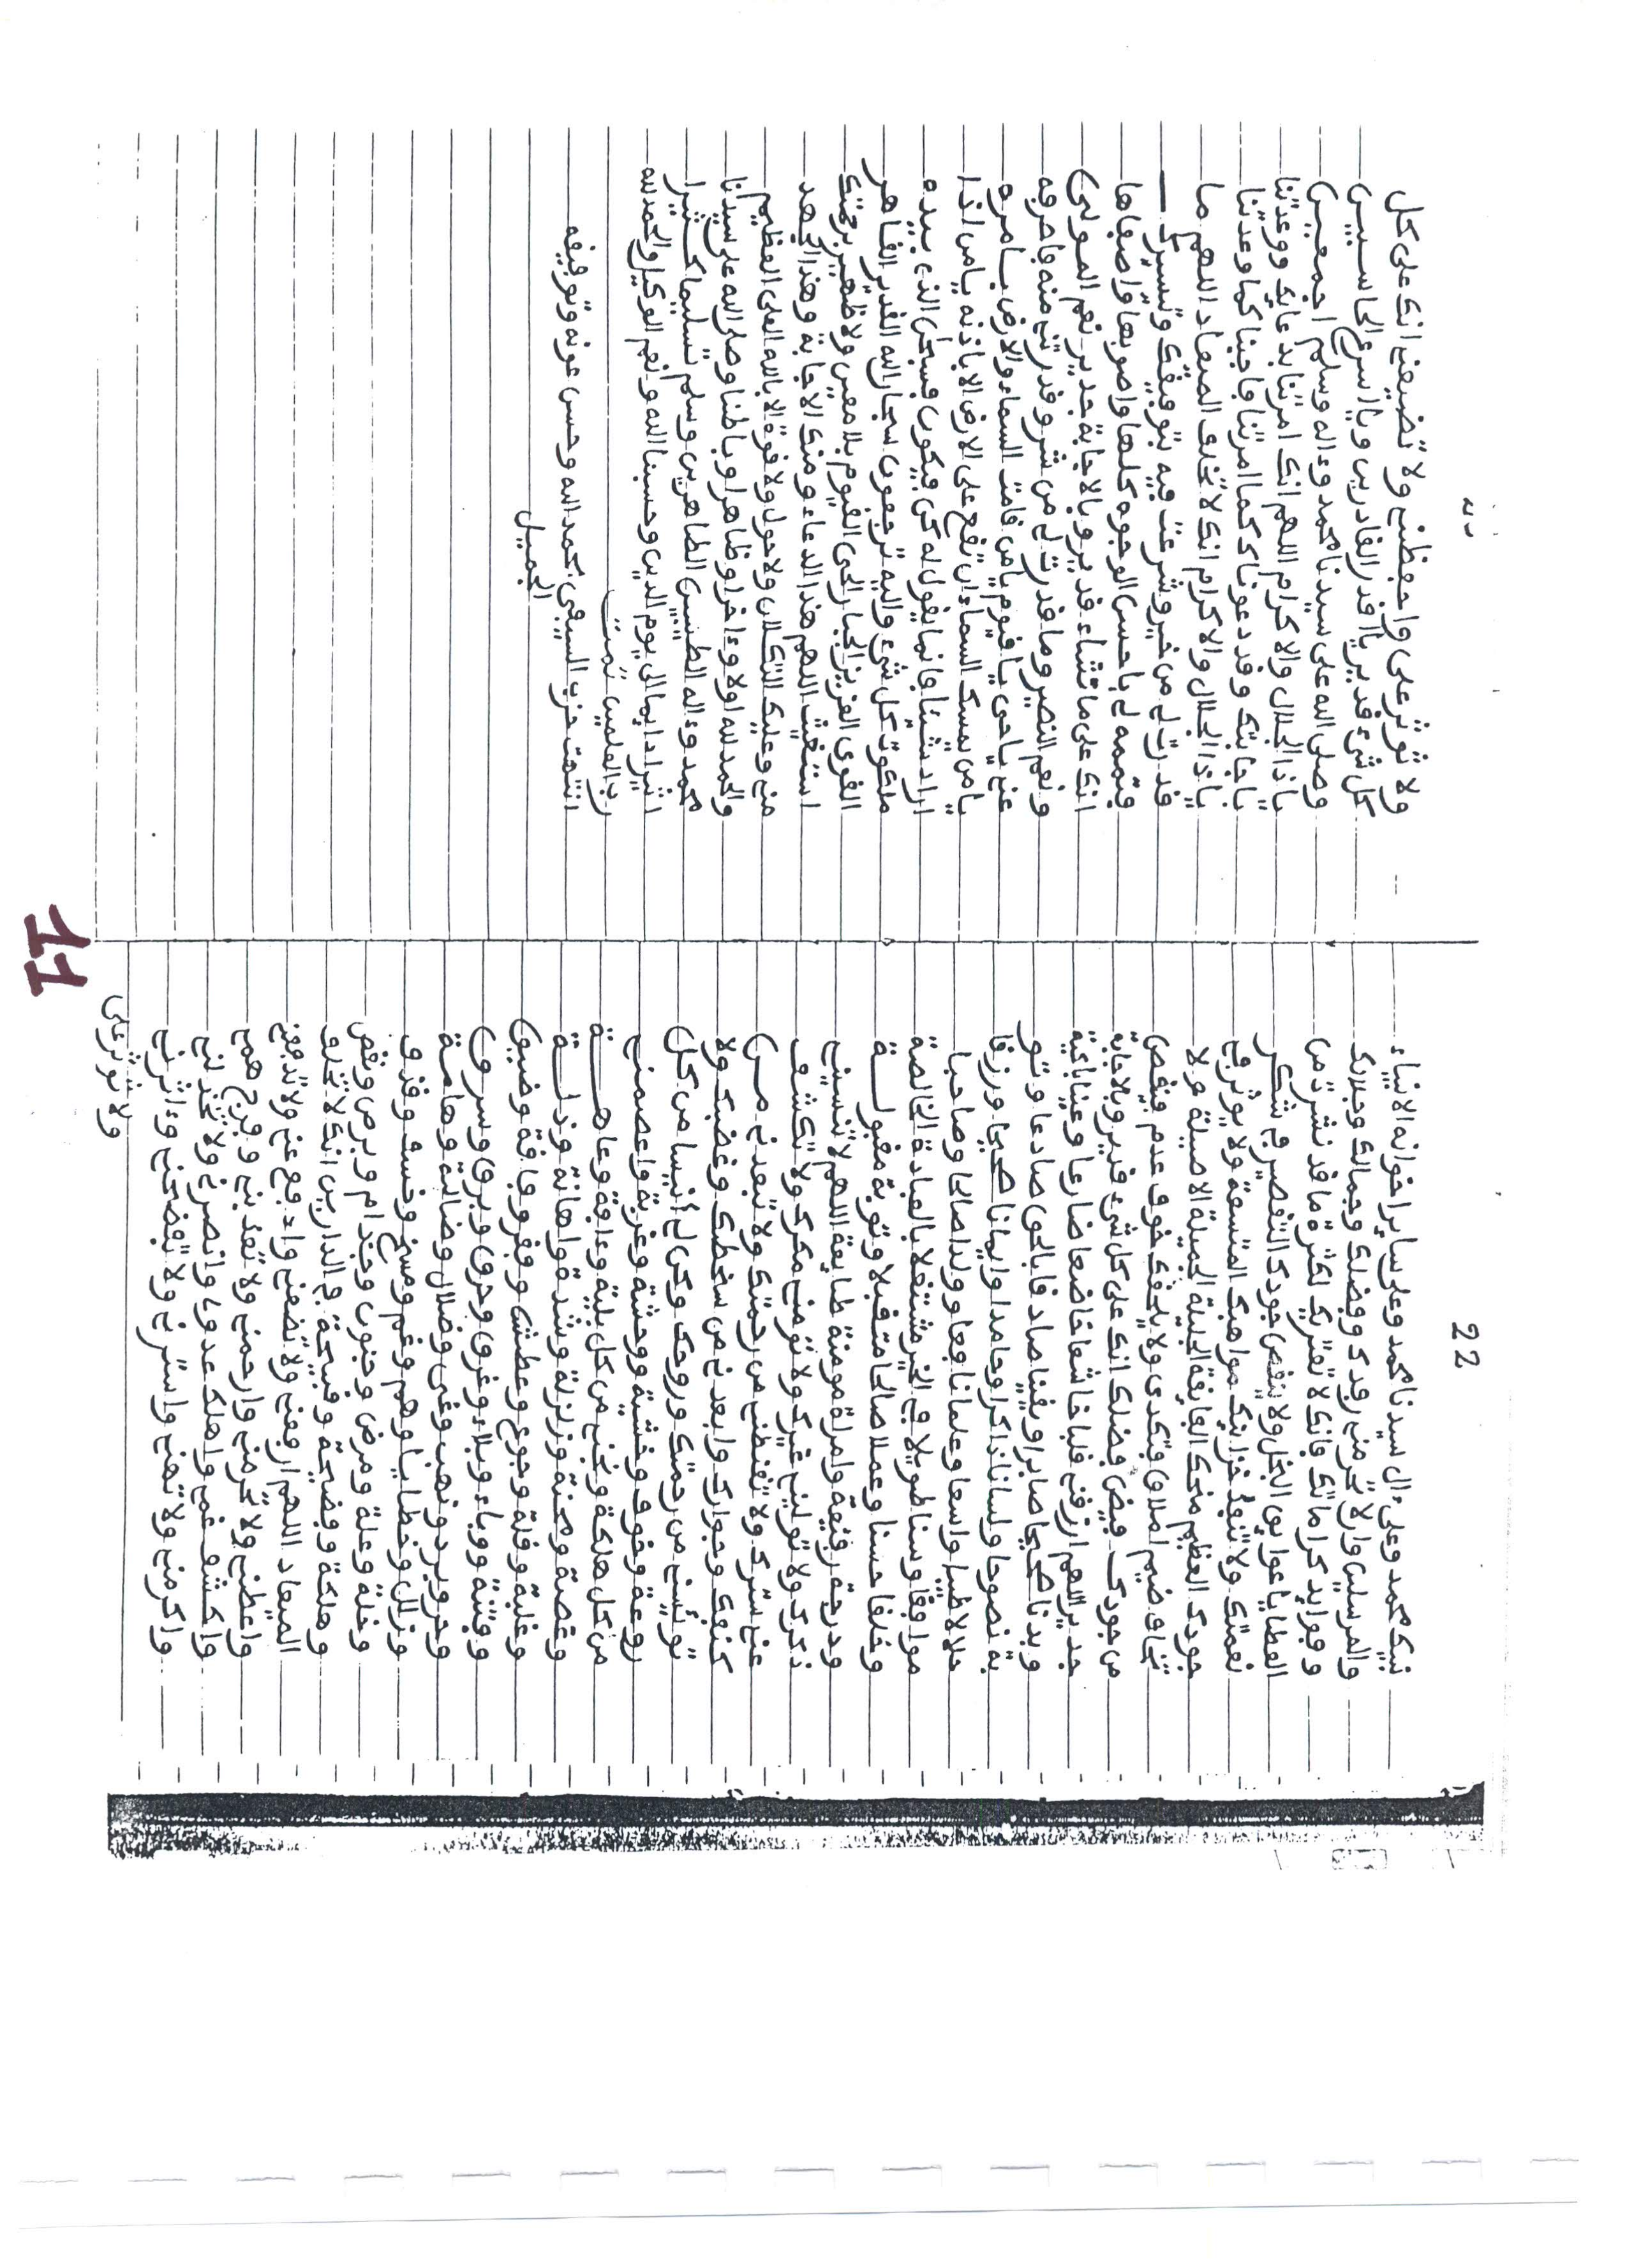 22
نبيك محمد وعلى ءال سيدنا محمد وعلى ساير اخوانه الانبياء
والمرسلين وارلا تحرمني رفدك وفضلك وجمالك وجلالك
وفوايد كراماتك فانك لا تعتريك لكثرة ما قد نشرت من
العطايا عوايق البخل ولا ينقص جودك التقصير في شكر
نعمتك ولا تنفد خزاينك مواهبك المتسعة ولا يوثر في
جودك العظيم منحك الفايقة الجليلة الجميلة الاصيلة ولا
تخاف ضيم املاق فتكدى ولا يلحقك خوف عدم فينقص
من جودك فيض فضلك انك على كل شيء قدير وبالاجابة
جدير اللهم ارزقني قلبا خاشعا خاضعا ضارعا وعينا باكية
وبدنا صحيحا صابرا ويقينا صادقا بالحق صادعا وتو
بة نصوحا ولسانا ذاكرا وحامدا وايمانا صحيحا ورزقا
حلالا طيبا واسعا وعلما نافعا وولدا صالحا وصاحبا
موافقا وسنا طويلا في الخير مشتغلا بالعبادة الخالصة
وخلقا حسنا وعملا صالحا متقبلا وتوبة مقبولة
ودرجة رفيعة وامراة مومنة طايعة اللهم لا تنسني
ذكرك ولا تولني غيرك ولا تومني مكرك ولا تكشف
عني سترك ولا تقنطني من رحمتك ولا تبعدني من
كنفك وجوارك وابعدني من سخطك وغضبك ولا
تويسني من رحمتك وروحك وكن لي انيسا من كل
روعة وخوف وخشية ووحشة وغربة واعصمني
من كل هلكة ونجني من كل بلية وءافة وعاهة
وغصة ومحنة وزلزلة وشدة واهانة وذلة
وغلبة وقلة وجوع وعطش وفقر وفاقة وضيق
وفتنة ووباء وبلاء وغرق وحرق وبرق وسرق
وحر وبرد ونهب وغي وضلال وضالة وهامة
وزلل وخطايا وهم وغم ومسخ وخسف وقذف
وخلة وعلة ومرض وجنون وجذام وبرص ونقص
وهلكة وفضيحة وقبيحة في الدارين انك لا تخلف
الميعاد اللهم ارفعني ولا تضعني وادفع عني ولا تدفعني
واعطني ولا تحرمني وارحمني ولا تعذبني وفرج همي
واكشف غمي واهلك عدوي وانصرني ولا تخذلني
واكرمني ولا تهني واسترني ولا تفضحني وءاثرني
ولا توثر علي
ولا توثر علي واحفظني ولا تضيعني انك على كل
كل شيء قدير يا اقدر القادرين ويا اسرع الحاسبين
وصلى الله على سيدنا محمد وءاله وسلم اجمعين
ياذا الجلال والاكرام اللهم انك امرتنا بدعايك ووعدتنا
باجابتك وقد دعوناك كما امرتنا فاجبنا كما وعدتنا
ياذا الجلال والاكرام انك لا تخلف الميعاد اللهم ما
قدرت لي من خير وشرعت فيه بتوفيقك وتيسيرك
فتممه لي باحسن الوجوه كلها واصوبها واصفاها
انك على ما تشاء قدير وبالاجابة جدير نعم المولى
ونعم النصير وما قدرت لي من شر وقدرتني منه فاصرفه
عني يا حي يا قيوم يا من قامت السماء والارض بامره
يا من يمسك السماء ان تقع على الارض الا باذنه يا من اذا
اراد شيئا فانما يقول له كن فيكون فسبحن الذي بيده
ملكوت كل شيء واليه ترجعون سبحان الله القدير القاهر
القوي العزيز الجبار الحي القيوم بلا معين ولا ظهير برحمتك
استغيث اللهم هذا الدعاء ومنك الاجابة وهذا الجهد
مني وعليك التكلان ولا حول ولا قوة الا بالله العلي العظيم
والحمد لله اولا وءاخرا وظاهرا وباطنا وصلى الله على سيدنا
محمد وءاله الطيبين الطاهرين وسلم تسليما كثيرا
اثيرا دايما الى يوم الدين وحسبنا الله ونعم الوكيل والحمد لله
رب العلمين تمت
انتهت حزب السيفي بحمد الله وحسن عونه وتوفيقه
الجميل
11